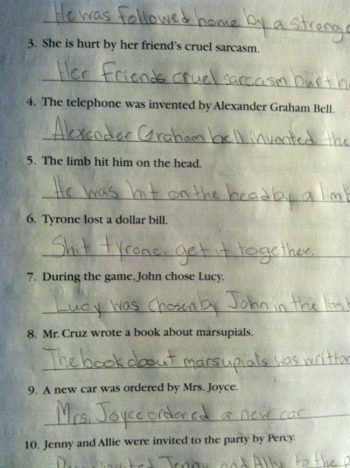 He was followed home by a strange
3. She is hurt by her friend's cruel sarcasm.
Her Friends cruel sarcasm hurt h
4. The telephone was invented by Alexander Graham Bell.
Alexander Graham bell invented the
5. The limb hit him on the head.
He was hit on the head by a limb
6. Tyrone lost a dollar bill.
Shit tyrone. get it together.
7. During the game, John chose Lucy.
Lucy was chosen by John in the
8. Mr. Cruz wrote a book about marsupials.
The book about marsupials was writte
9. A new car was ordered by Mrs. Joyce.
Mrs. Joyce ordered a new car
10. Jenny and Allie were invited to the party by Percy.
Jenny and Ally to the